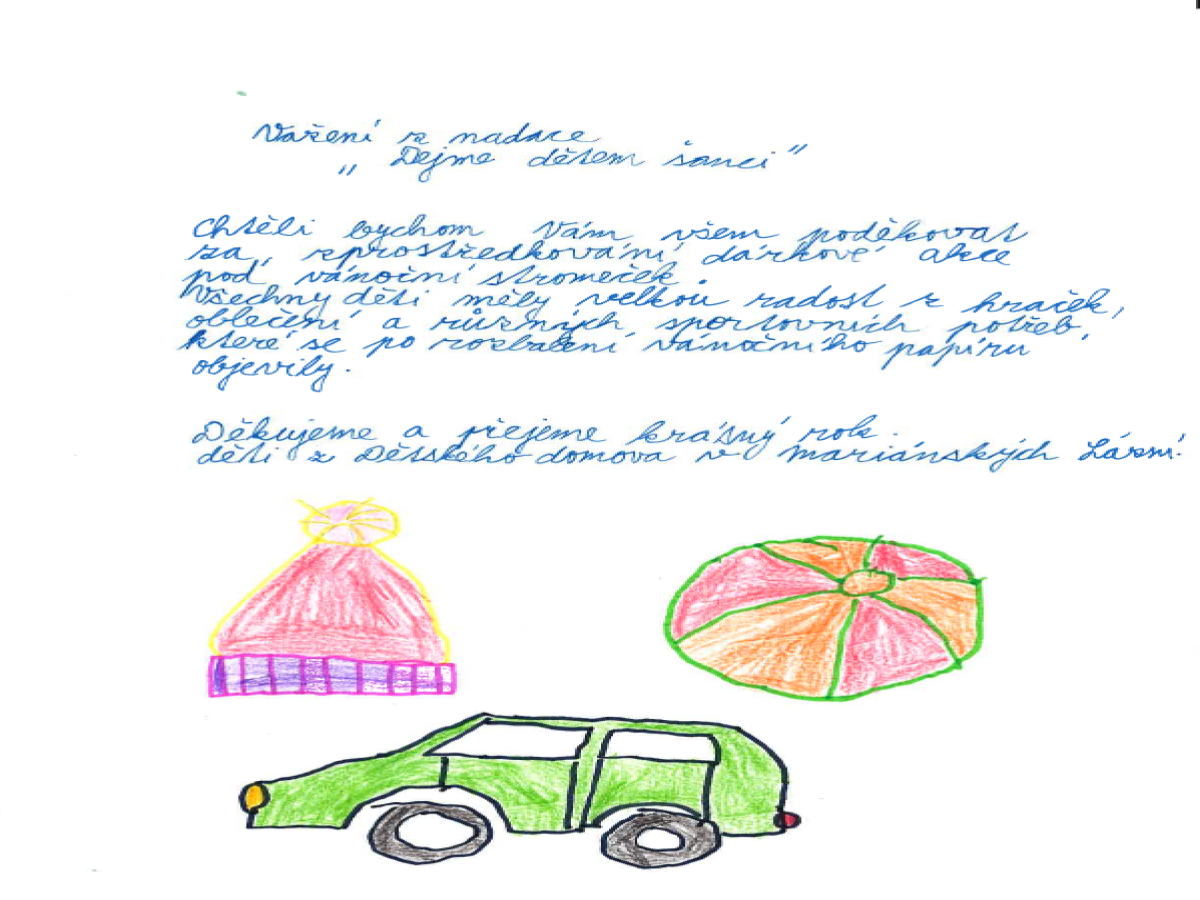 Vážení z nadace
„ Dejme dětem šanci "
Chtěli bychom Vám všem poděkovat
za zprostředkování dárkové akce
pod vánoční stromeček.
Všechny děti měly velkou radost z hraček,
oblečení a různých sportovních potřeb,
které se po rozbalení vánočního papíru
objevily.
Děkujeme a přejeme krásný rok.
děti z Dětského domova v mariánských Lázní!